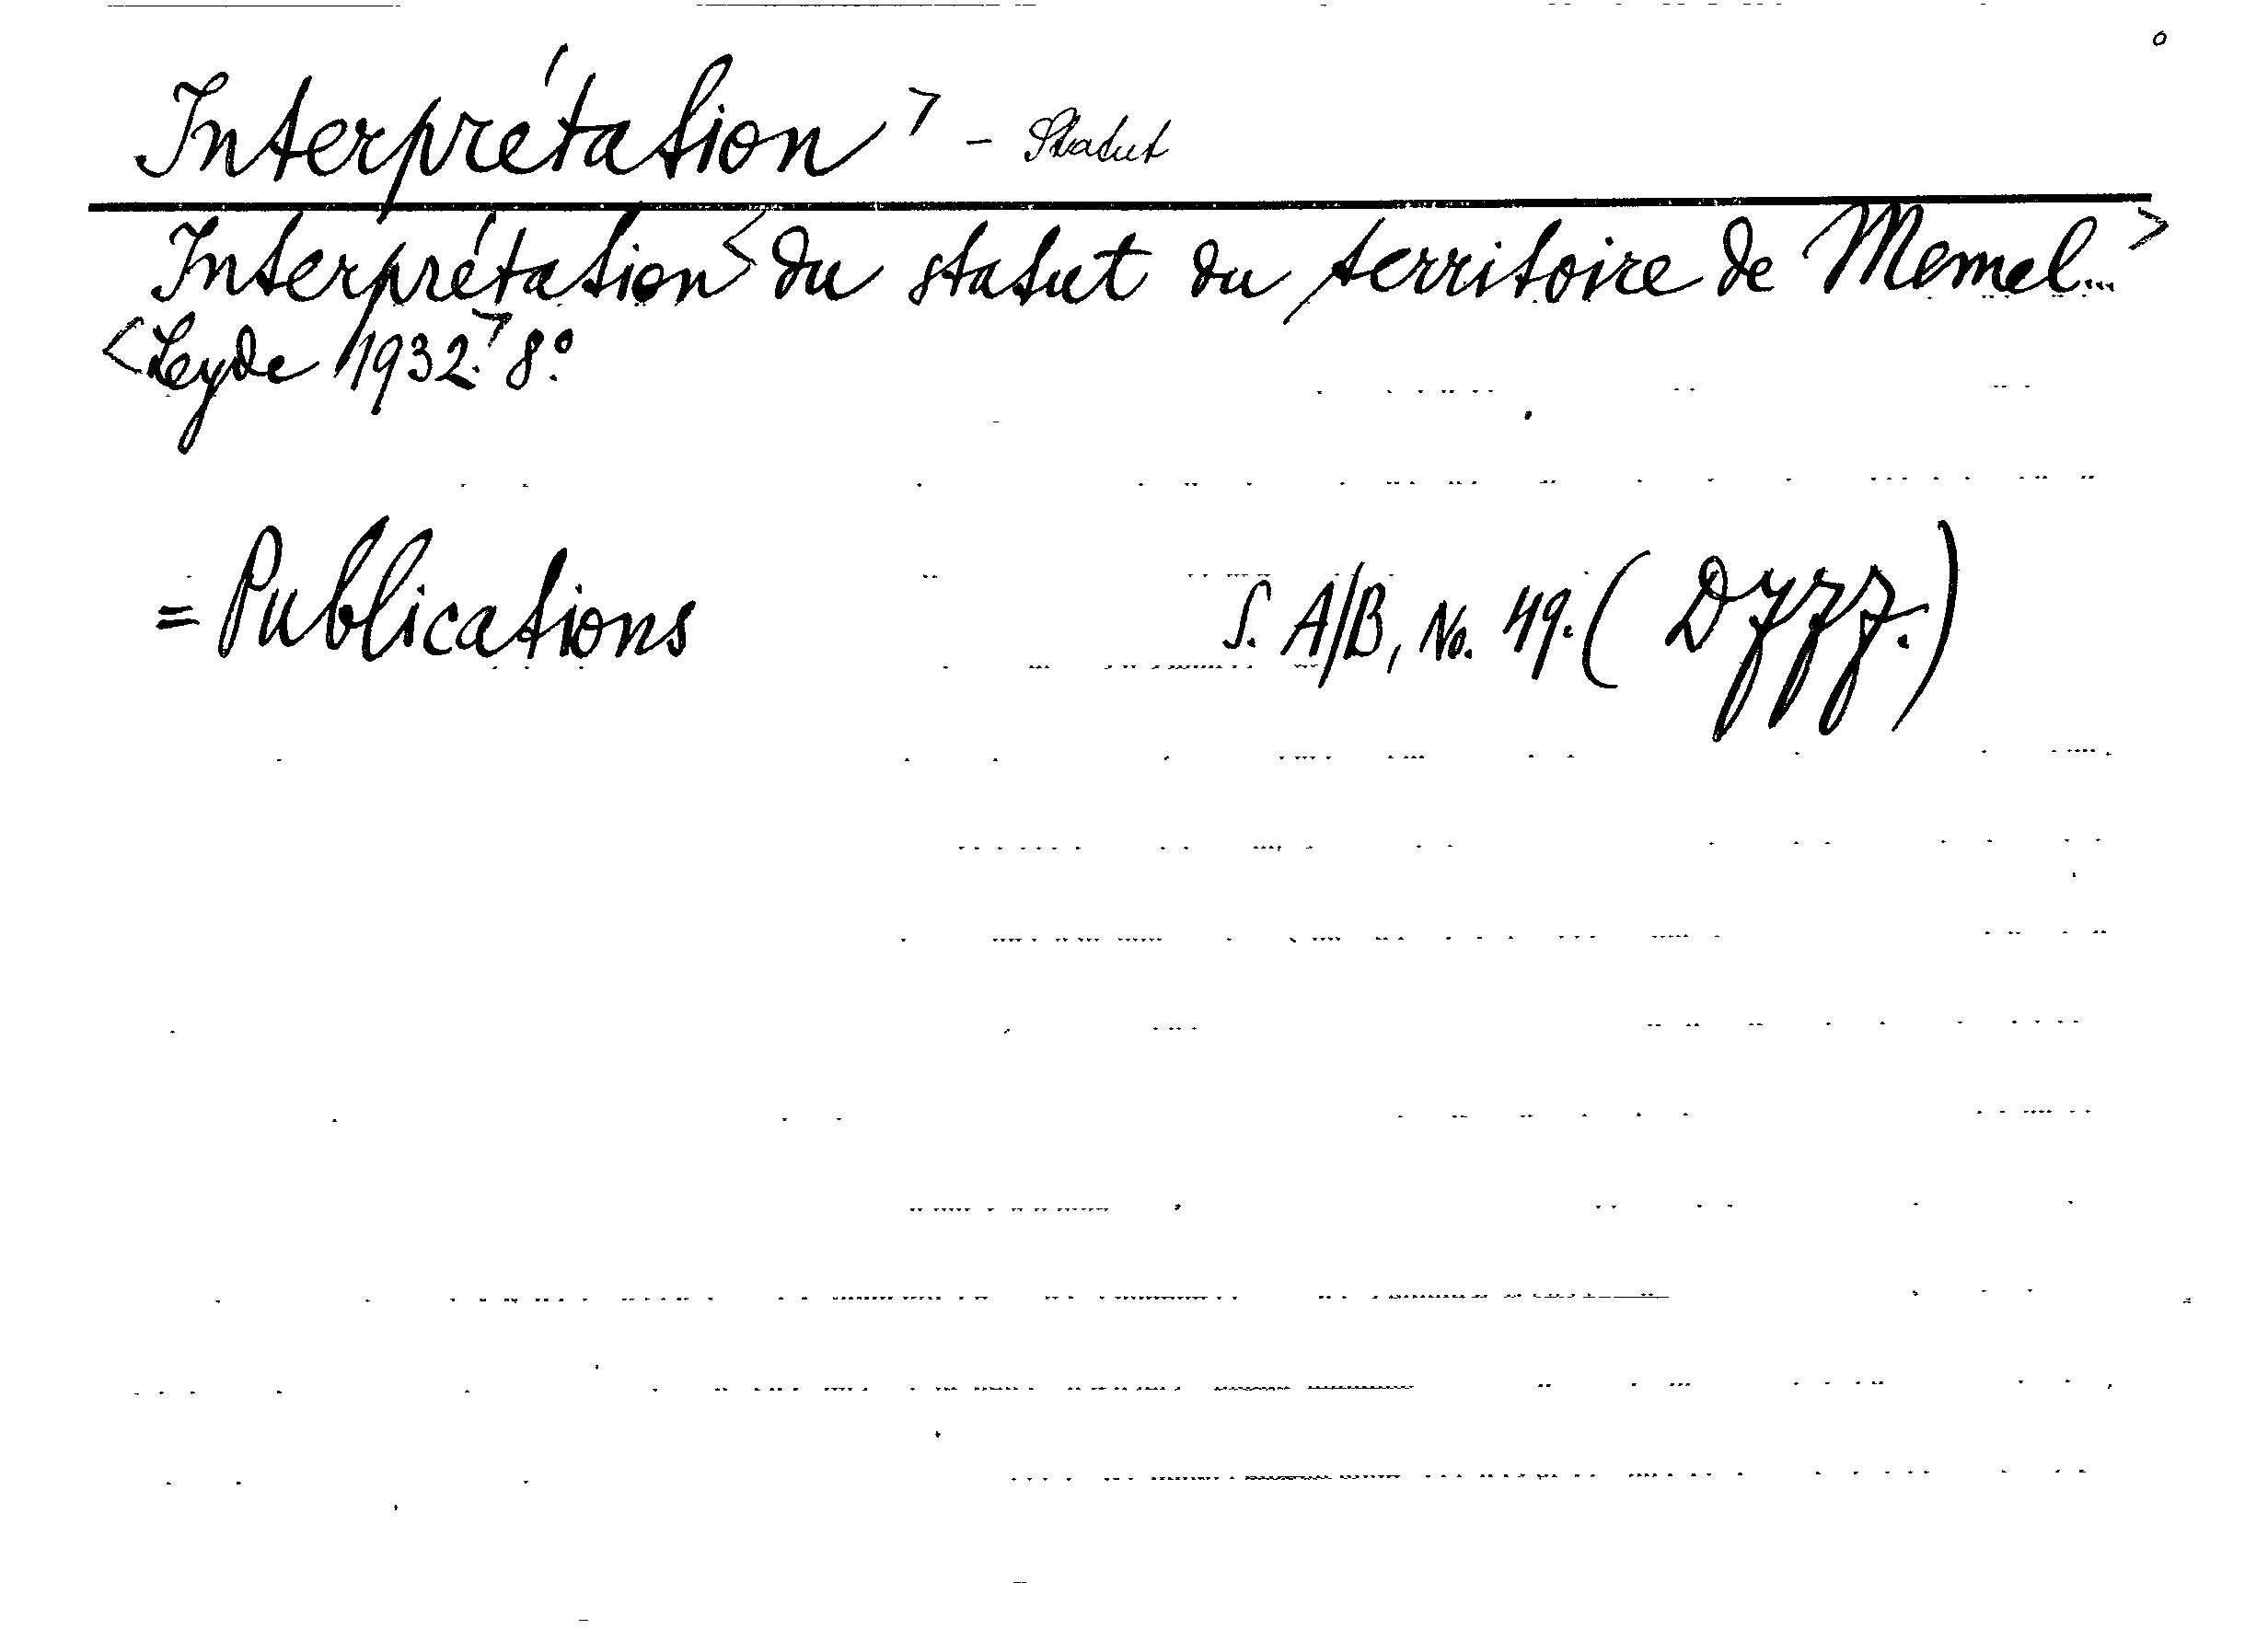 Interprétation > - Statut
Interprétation < du statut du territoire de Memel... >
< Leyde 1932. > 8°.
= Publications S. A/B, No. 49. (